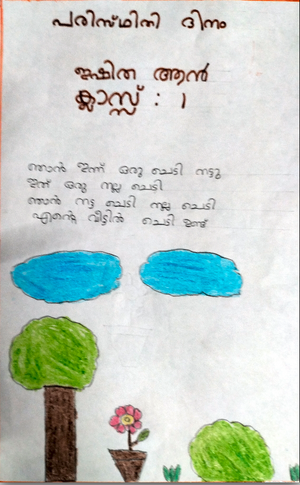 പരിസ്ഥിതി ദിനം
ഇഷിത ആൻ
ക്ലാസ്സ് : 1
ഞാൻ ഇന്ന് ഒരു ചെടി നട്ടു
ഇത് ഒരു നല്ല ചെടി
ഞാൻ നട്ട ചെടി നല്ല ചെടി
എന്റെ വീട്ടിൻ ചെടി ഉണ്ട്